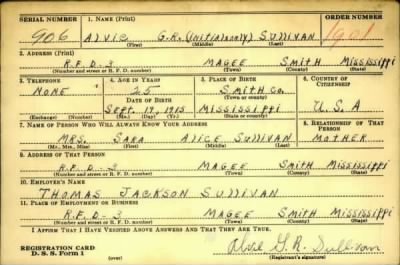 SERIAL NUMBER 1. NAME (Print) ORDER NUMBER
906 ALVIE G.R. (Initial only) SULLIVAN 1901
(First) (Middle) (Last)
2. ADDRESS (Print)
R.F.D-3 MAGEE SMITH MISSISSIPPI
(Number and street or R. F. D. number) (Town) (County) (State)
3. TELEPHONE 4. AGE IN YEARS 5. PLACE OF BIRTH 6. COUNTRY OF CITIZENSHIP
NONE 25 SMITH CO.
(Town or county)
DATE OF BIRTH
SEPT. 17, 1915 MISSISSIPPI U.S.A
(Exchange) (Number) (Mo.) (Day) (Yr.) (State or country)
7. NAME OF PERSON WHO WILL ALWAYS KNOW YOUR ADDRESS 8. RELATIONSHIP OF THAT PERSON
MRS. SARA ALICE SULLIVAN MOTHER
(Mr., Mrs., Miss) (First) (Middle) (Last)
9. ADDRESS OF THAT PERSON
R.F.D-3 MAGEE SMITH MISSISSIPPI
(Number and street or R. F. D. number) (Town) (County) (State)
10. EMPLOYER'S NAME
THOMAS JACKSON SULLIVAN
11. PLACE OF EMPLOYMENT OR BUSINESS
R.F.D-3 MAGEE SMITH MISSISSIPPI
(Number and street or R. F. D. number) (Town) (County) (State)
I AFFIRM THAT I HAVE VERIFIED ABOVE ANSWERS AND THAT THEY ARE TRUE.
REGISTRATION CARD
D. S. S. Form 1 (over) Alvie G.R. Sullivan
(Registrant's signature)